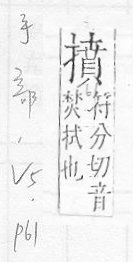 符分切音
焚拭也
手部, V5, p61